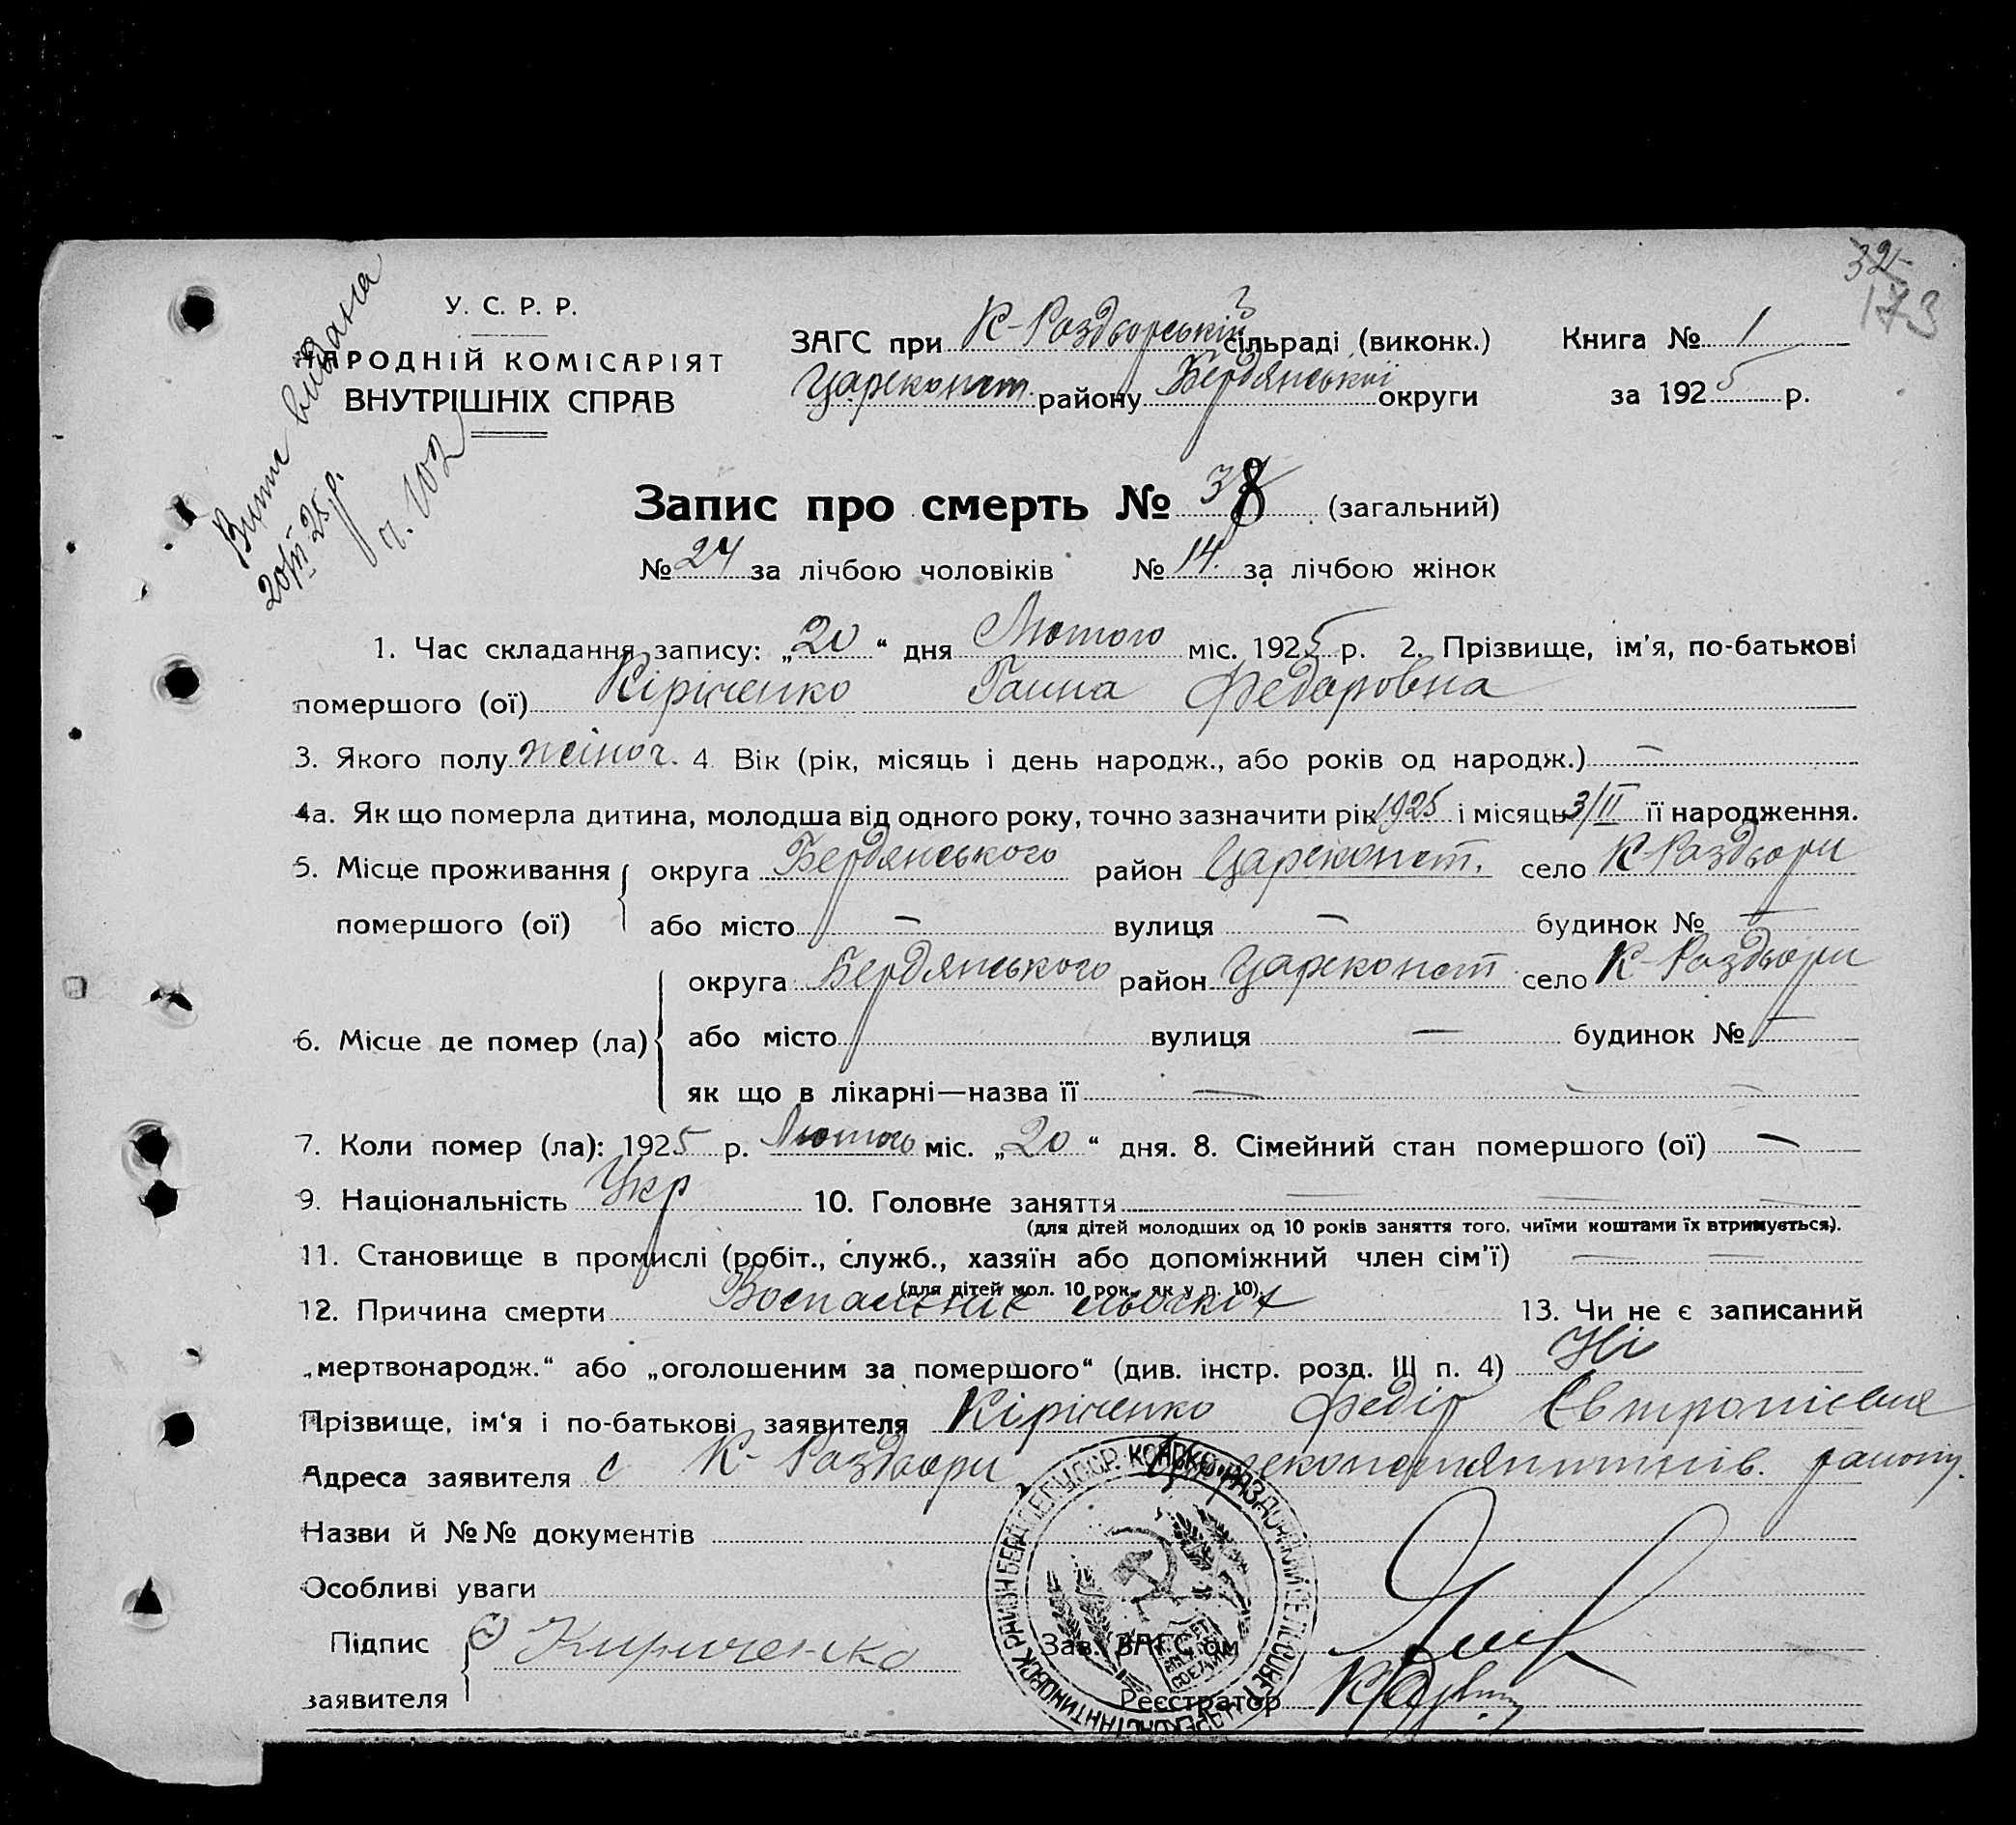 32
173
У. С. Р. Р.
НАРОДНІЙ КОМІСАРІЯТ
ВНУТРІШНІХ СПРАВ
Витяг видана
20/III 25 р.
ч. 102
ЗАГС при К-Роздорській сільраді (виконк.) Книга № 1
Цареконст. району Бердянської округи за 1925 р.
Запис про смерть № 38 (загальний)
№ 24 за лічбою чоловіків № 14. за лічбою жінок
1. Час складання запису: „20“ дня Лютого міс. 1925 р. 2. Прізвище, ім’я, по-батькові
помершого (ої) Кіріченко Ганна Федоровна
3. Якого полу жіноч. 4 Вік (рік, місяць і день народж., або років од народж.) —
4а. Як що померла дитина, молодша від одного року, точно зазначити рік 1925 і місяць 3/II її народження.
5. Місце проживання округа Бердянського район Цареконст. село К-Раздори
помершого (ої) або місто — вулиця — будинок № —
округа Бердянського район Цареконст село К-Раздори
6. Місце де помер (ла) або місто вулиця — будинок № —
як що в лікарні—назва її —
7. Коли помер (ла): 1925 р. Лютого міс. „20“ дня. 8. Сімейний стан помершого (ої) —
9. Національність Укр 10. Головне заняття —
(для дітей молодших од 10 років заняття того, чиїми коштами їх втримується).
11. Становище в промислі (робіт., служб., хазяїн або допоміжний член сім’ї) —
(для дітей мол. 10 рок. як у п. 10)
12. Причина смерти Воспаление льогких 13. Чи не є записаний
„мертвонародж.“ або „оголошеним за помершого“ (див. інстр. розд. III п. 4) Ні
Прізвище, ім‘я і по-батькові заявителя Кіріченко Федір
Адреса заявителя с К-Раздори району.
Назви й №№ документів
Особливі уваги
Підпис Кириченко Зав. ЗАГС’ом
заявителя Реєстратор